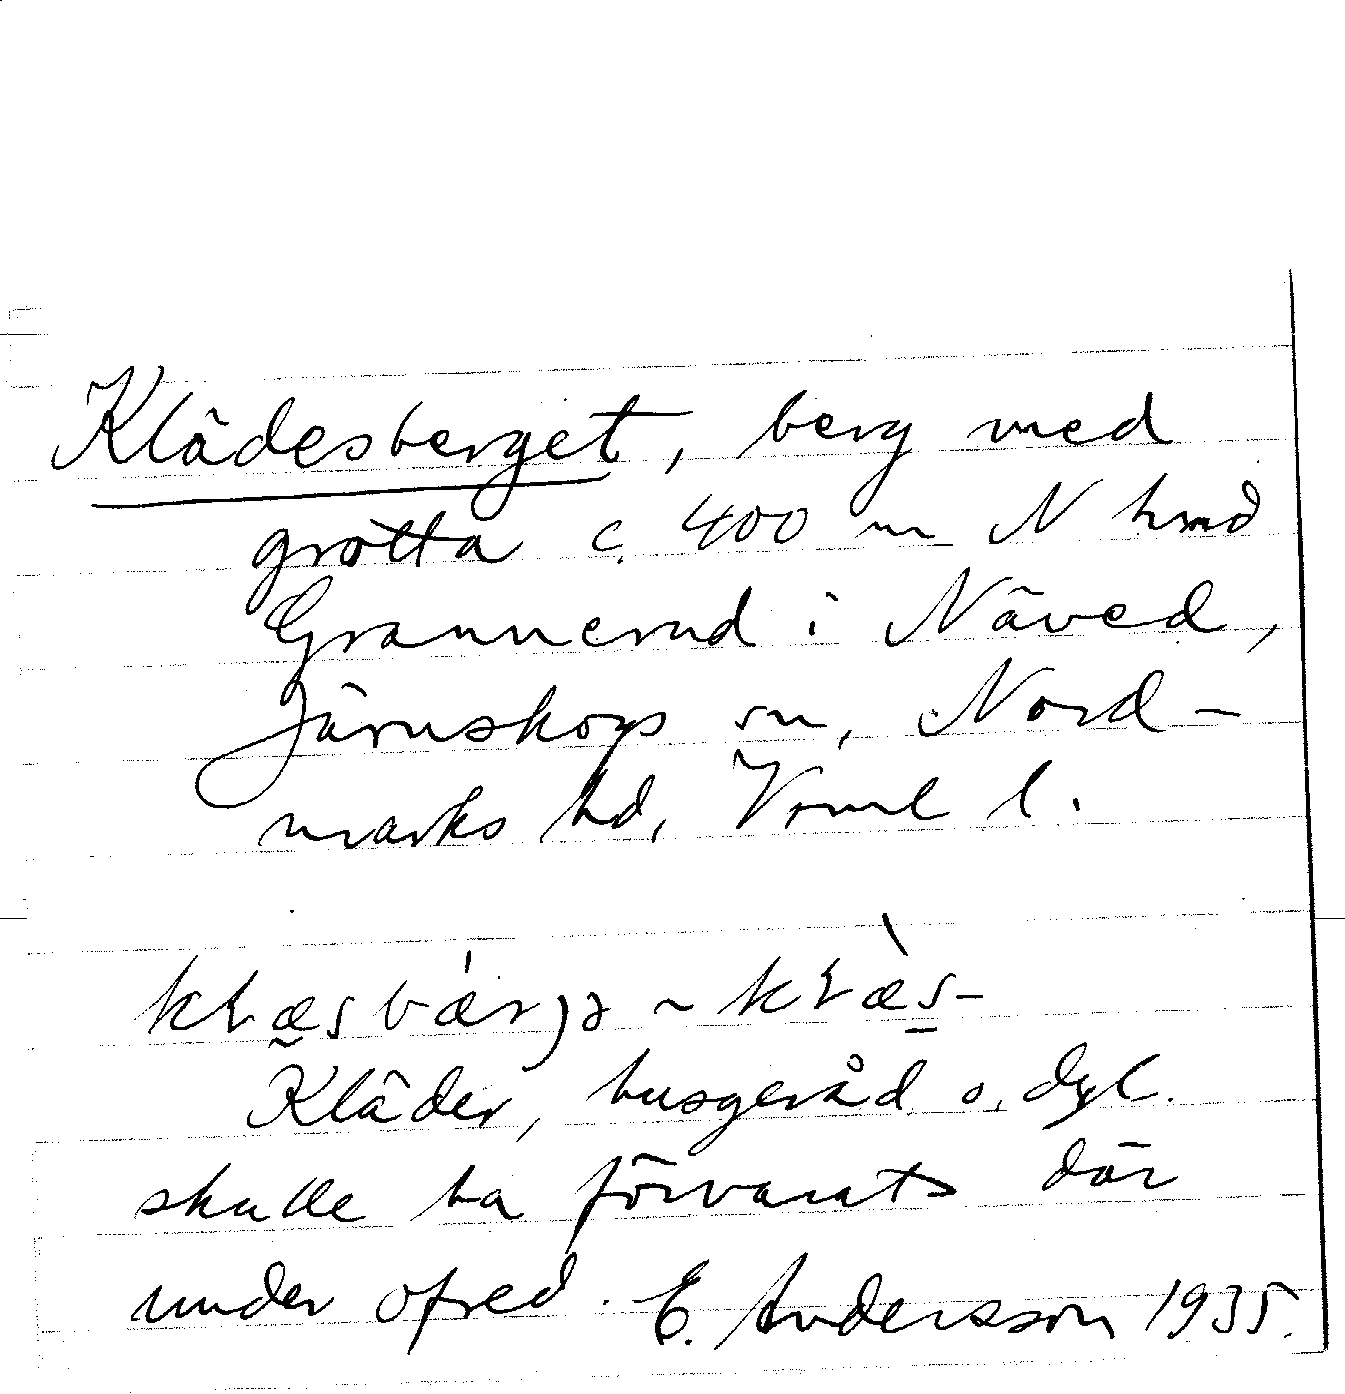 Klädesberget, berg med
grotta c. 400 m N hmd
Grannerud i Näved,
Järnskogs sn, Nord-
marks hd, Vrml l.
Kläder, husgeråd o. dyl.
skulle ha förvarats där
under ofred. E. Andersson 1935.